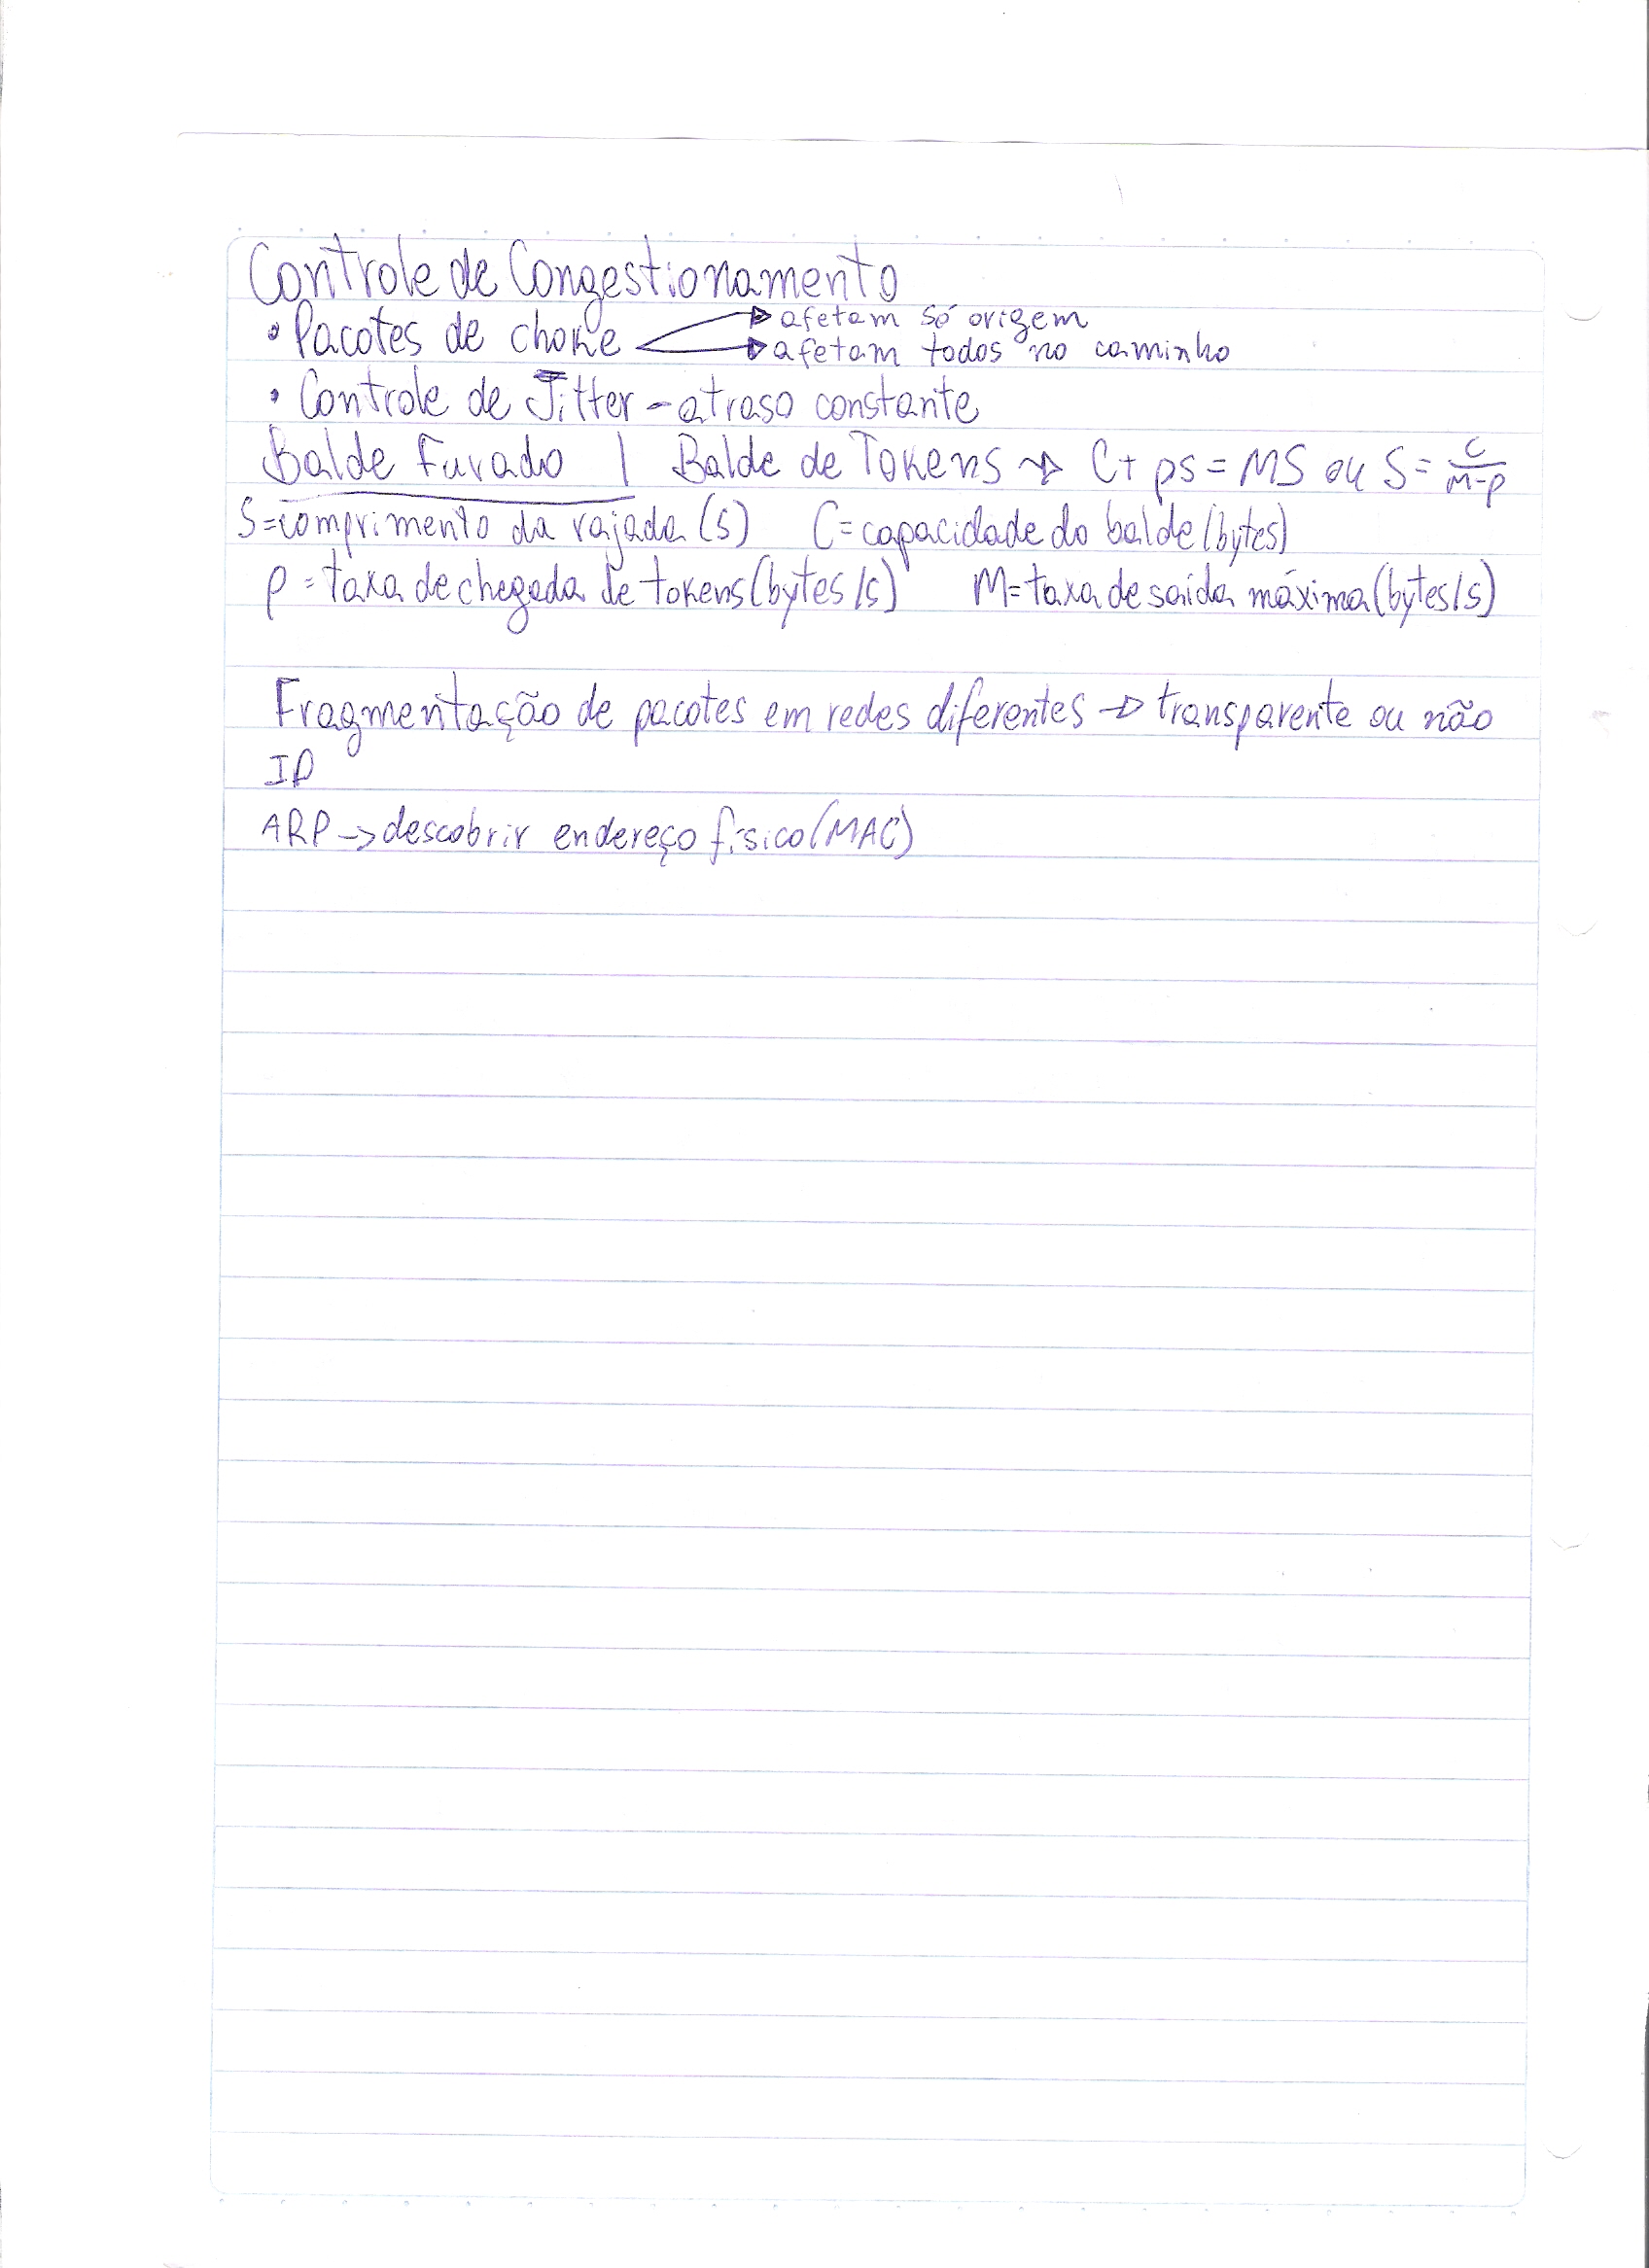 Controle de Congestionamento
• Pacotes de choke → afetam só origem
→ afetam todos no caminho
• Controle de Jitter - atraso constante
Balde Furado | Balde de Tokens → C + ρs = MS ou S = C/(M-ρ)
S = comprimento da rajada (s) C = capacidade do balde (bytes)
ρ = taxa de chegada de tokens (bytes/s) M = taxa de saída máxima (bytes/s)
Fragmentação de pacotes em redes diferentes → transparente ou não
IP
ARP → descobrir endereço físico (MAC)